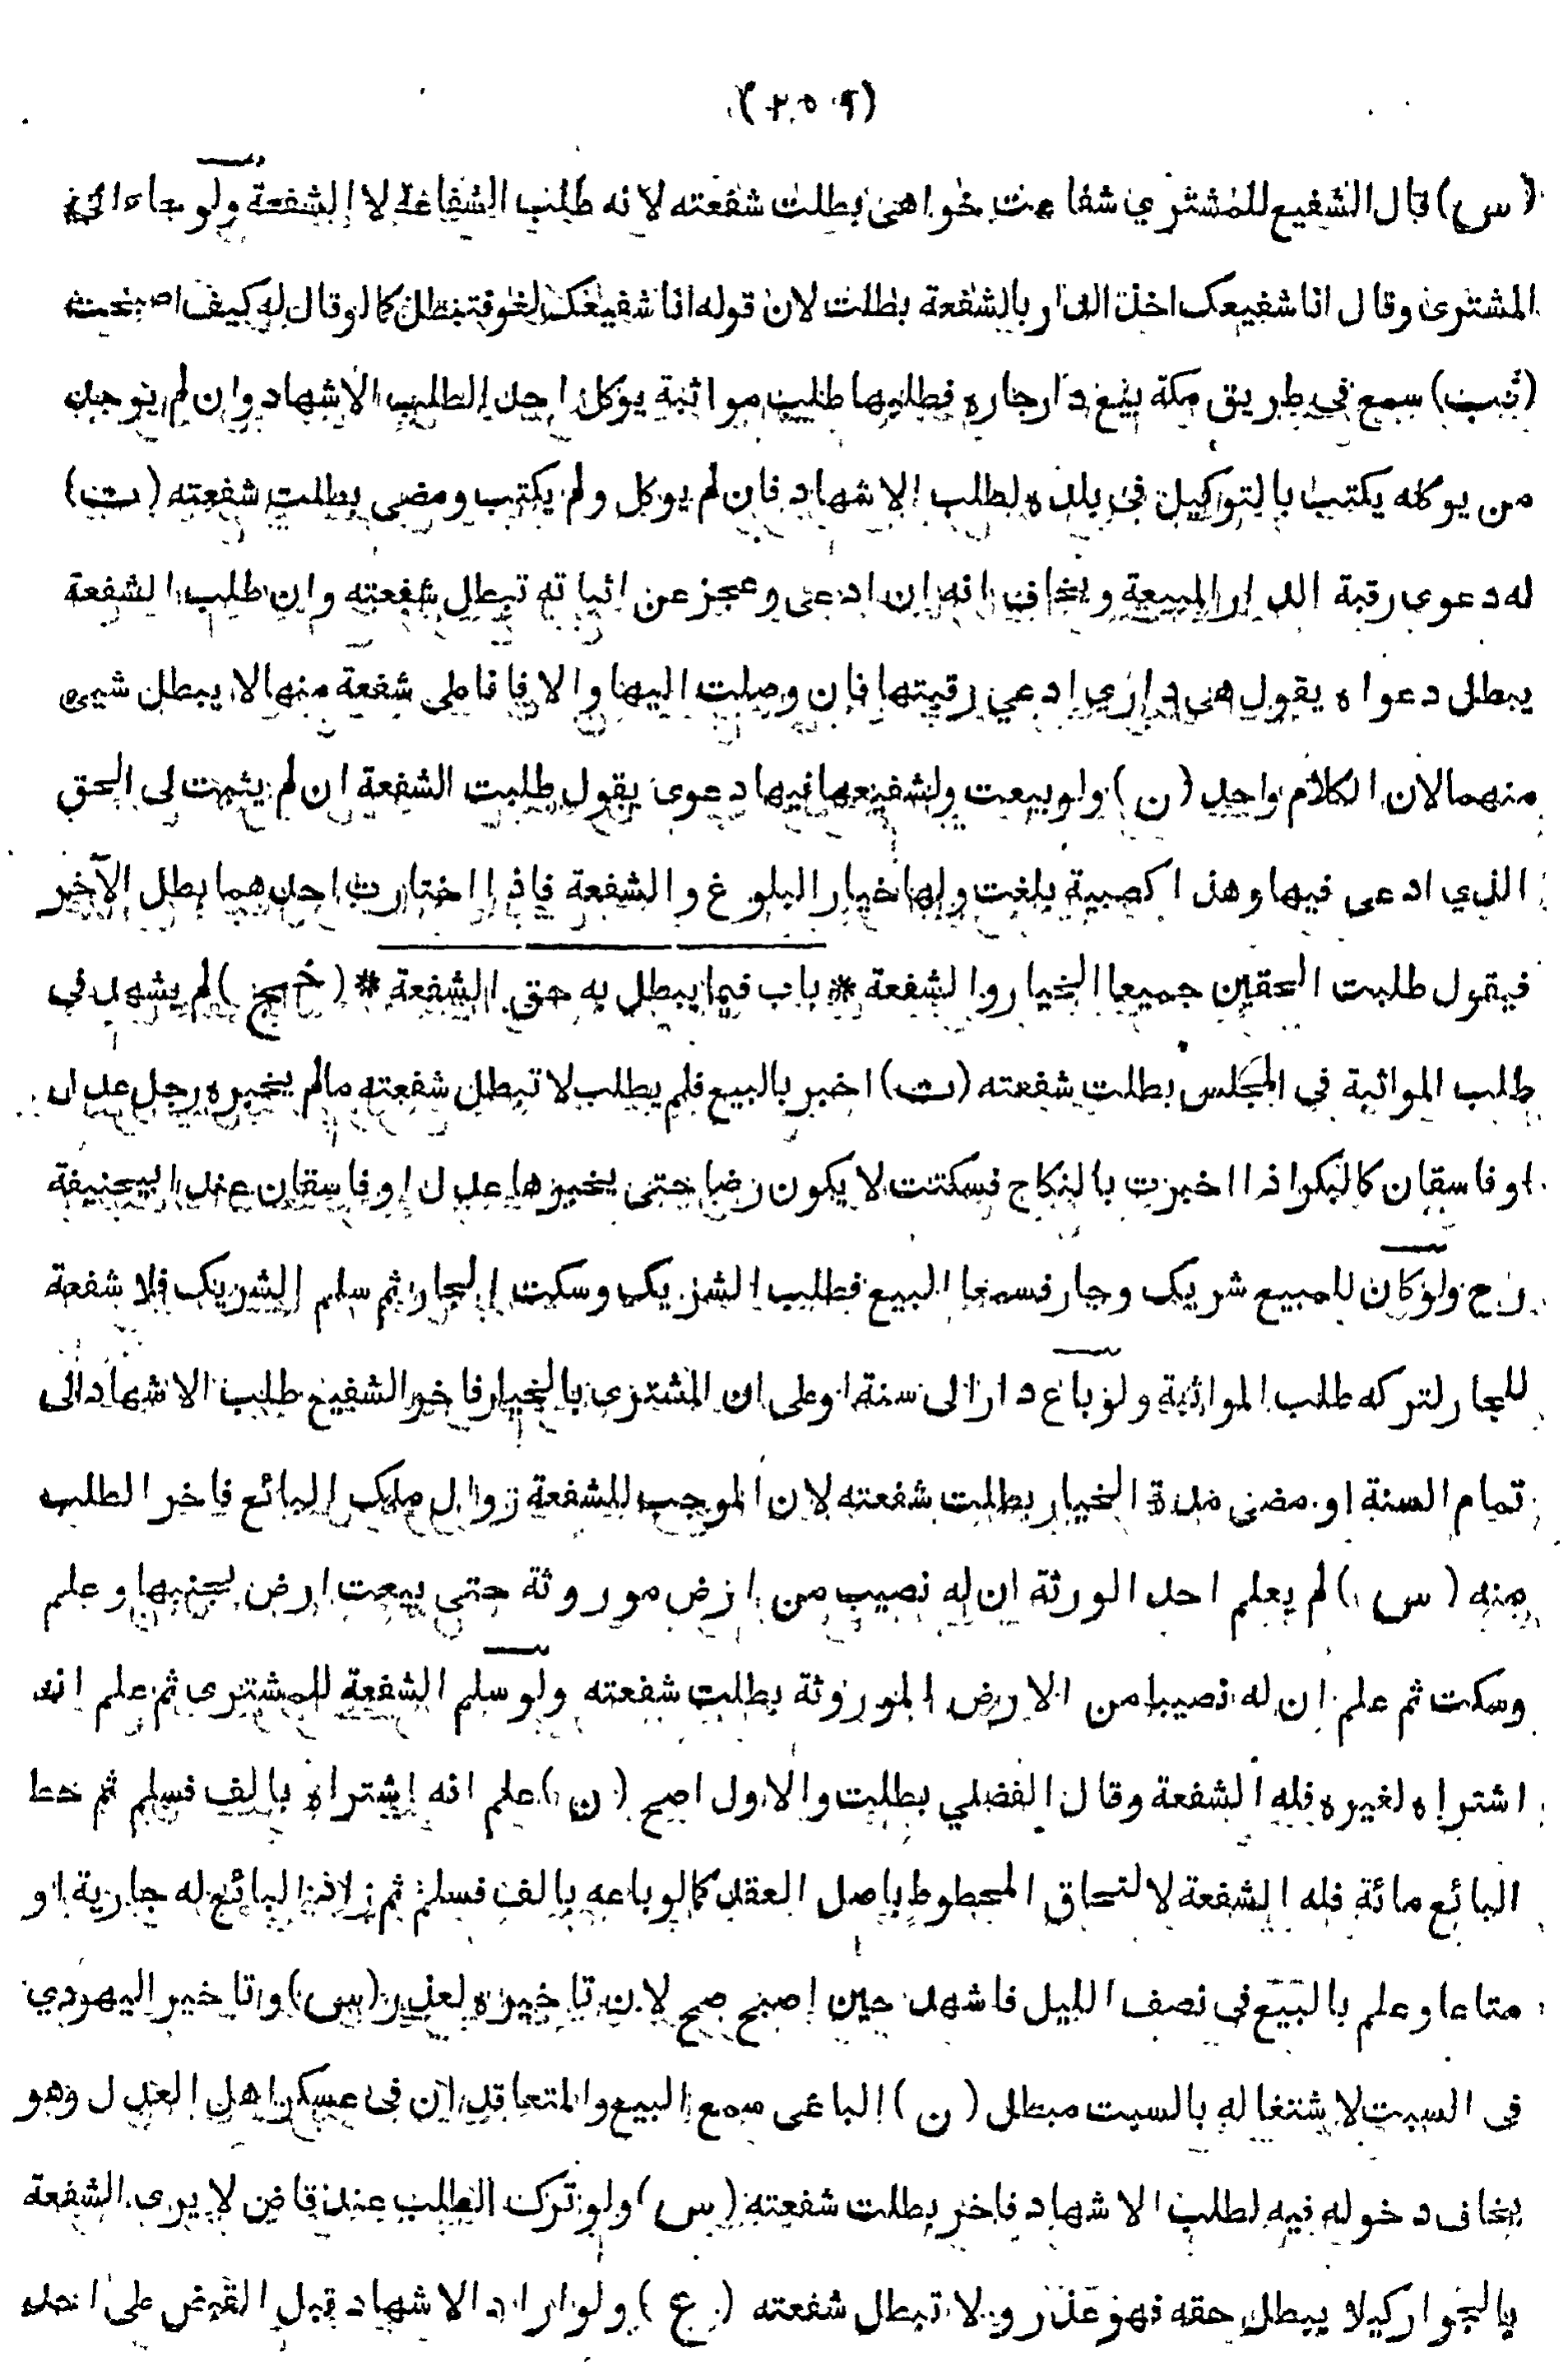 (٢٥٩)
(س) قال الشفيع للمشتري شفاعت خواهى بطلت شفعته لانه طلب الشفاعة لا الشفعة ولو جاء الى
المشترى وقال انا شفيعك اخذ الدار بالشفعة بطلت لان قوله انا شفيعك لغو فتبطل كما لو قال له كيف اصبحت
(شب) سمع فى طريق مكة بيع دار جاره فطلبها طلب مواثبة يوكل احدا لطلب الاشهاد وان لم يوجد
من يوكله يكتب بالتوكيل فى بلده لطلب الاشهاد فان لم يوكل ولم يكتب ومضى بطلت شفعته (ت)
له دعوى رقبة الدار المبيعة ويخاف انه ان ادعى وعجز عن اثباته تبطل شفعته وان طلب الشفعة
يبطل دعواه يقول هى دارى ادعي رقبتها فان وصلت اليها والا فانا على شفعة منها لا يبطل شيئ
منهما لان الكلام واحد (ن) ولو بيعت ولشفيعها فيها دعوى يقول طلبت الشفعة ان لم يثبت لى الحق
الذي ادعى فيها وهذا كصبية بلغت ولها خيار البلوغ والشفعة فاذا اختارت احدهما بطل الآخر
فيقول طلبت الحقين جميعا الخيار والشفعة * باب فيما يبطل به حق الشفعة * (خج) لم يشهد فى
طلب المواثبة في المجلس بطلت شفعته (ت) اخبر بالبيع فلم يطلب لا تبطل شفعته مالم يخبره رجل عدل
او فاسقان كالبكر اذا اخبرت بالنكاح فسكتت لا يكون رضا حتى يخبرها عدل او فاسقان عند ابيحنيفة
رح ولو كان للمبيع شريك وجار فسمعا البيع فطلب الشريك وسكت الجار ثم سلم الشريك فلا شفعة
للجار لتركه طلب المواثبة ولو باع دارا الى سنة او على ان المشترى بالخيار فاخر الشفيع طلب الاشهاد الى
تمام السنة او مضى مدة الخيار بطلت شفعته لان الموجب للشفعة زوال ملك البائع فاخر الطلب
منه (س) لم يعلم احد الورثة ان له نصيب من ارض موروثة حتى بيعت ارض بجنبها وعلم
وسكت ثم علم ان له نصيبا من الارض الموروثة بطلت شفعته ولو سلم الشفعة للمشترى ثم علم انه
اشتراه لغيره فله الشفعة وقال الفضلي بطلت والاول اصح (ن) علم انه اشتراه بالف فسلم ثم حط
البائع مائة فله الشفعة لالتحاق المحطوط باصل العقد كما لو باعه بالف فسلم ثم زاد البائع له جارية او
متاعا وعلم بالبيع فى نصف الليل فاشهد حين اصبح صح لان تاخيره لعذر (س) وتاخير اليهودي
فى السبت لاشتغاله بالسبت مبطل (ن) الباغى سمع البيع والمتعاقدان فى عسكر اهل العدل وهو
يخاف دخوله فيه لطلب الاشهاد فاخر بطلت شفعته (س) ولو ترك الطلب عند قاض لا يرى الشفعة
بالجوار كيلا يبطل حقه فهو عذر ولا تبطل شفعته (ع) ولو اراد الاشهاد قبل القبض على احد